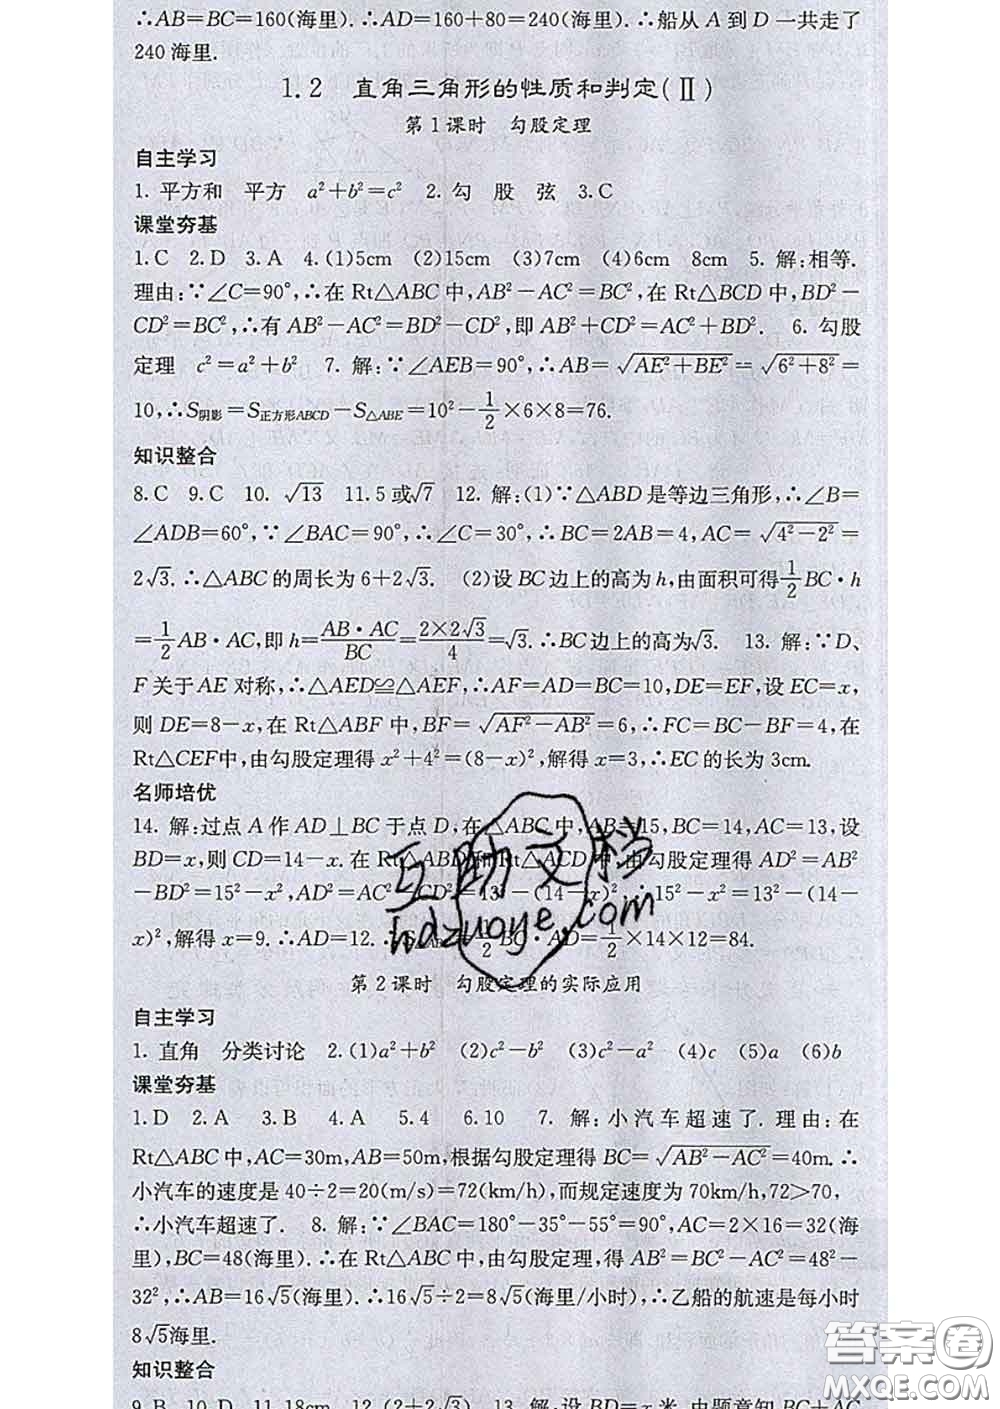 ∴AB=BC=160(海里).∴AD=160+80=240(海里).∴船从A到D一共走了
240海里.
1.2 直角三角形的性质和判定(Ⅱ)
第1课时 勾股定理
自主学习
1. 平方和 平方 a²+b²=c² 2. 勾 股 弦 3.C
课堂夯基
1.C 2.D 3.A 4.(1)5cm (2)15cm (3)7cm (4)6cm 8cm 5. 解:相等.
理由:∵∠C=90°,∴在Rt△ABC中,AB²-AC²=BC²,在Rt△BCD中,BD²-
CD²=BC²,∴有AB²-AC²=BD²-CD²,即AB²+CD²=AC²+BD². 6. 勾股
定理 c²=a²+b² 7. 解:∵∠AEB=90°,∴AB=√(AE²+BE²)=√(6²+8²)=
10,∴S阴影=S正方形ABCD-S△ABE=10²-1/2×6×8=76.
知识整合
8.C 9.C 10. √13 11.5或√7 12. 解:(1)∵△ABD是等边三角形,∴∠B=
∠ADB=60°,∵∠BAC=90°,∴∠C=30°,∴BC=2AB=4,AC=√(4²-2²)=
2√3.∴△ABC的周长为6+2√3. (2)设BC边上的高为h,由面积可得1/2BC·h
=1/2AB·AC,即h=AB·AC/BC=2×2√3/4=√3.∴BC边上的高为√3. 13. 解:∵D、
F关于AE对称,∴△AED≌△AEF,∴AF=AD=BC=10,DE=EF,设EC=x,
则DE=8-x,在Rt△ABF中,BF=√(AF²-AB²)=6,∴FC=BC-BF=4,在
Rt△CEF中,由勾股定理得x²+4²=(8-x)²,解得x=3,∴EC的长为3cm.
名师培优
14. 解:过点A作AD⊥BC于点D,在△ABC中,AB=15,BC=14,AC=13,设
BD=x,则CD=14-x.在Rt△ABD和Rt△ACD中,由勾股定理得AD²=AB²
-BD²=15²-x²,AD²=AC²-CD²=13²-(14-x)²,∴15²-x²=13²-(14-
x)²,解得x=9.∴AD=12.∴S△ABC=1/2BC·AD=1/2×14×12=84.
互助文档
hdzuoye.com
第2课时 勾股定理的实际应用
自主学习
1. 直角 分类讨论 2.(1)a²+b² (2)c²-b² (3)c²-a² (4)c (5)a (6)b
课堂夯基
1.D 2.A 3.B 4.A 5.4 6.10 7. 解:小汽车超速了.理由:在
Rt△ABC中,AC=30m,AB=50m,根据勾股定理得BC=√(AB²-AC²)=40m.∴
小汽车的速度是40÷2=20(m/s)=72(km/h),而规定速度为70km/h,72>70,
∴小汽车超速了. 8. 解:∵∠BAC=180°-35°-55°=90°,AC=2×16=32(海
里),BC=48(海里).∴在Rt△ABC中,由勾股定理,得AB²=BC²-AC²=48²-
32²,∴AB=16√5(海里).∴16√5÷2=8√5(海里/小时),∴乙船的航速是每小时
8√5海里.
知识整合
9.B 10.D 11.18cm 12.(2+2√3) 13. 解:设BD=x米,由题意知BC+AC
答案圈
MXQE.COM